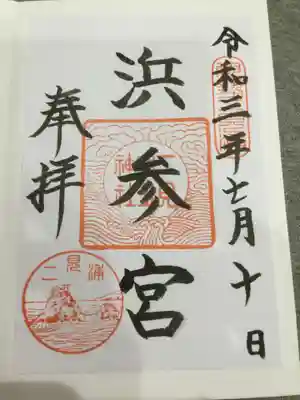 令和三年七月十日
浜参宮
奉拝
二見
神社
二見浦